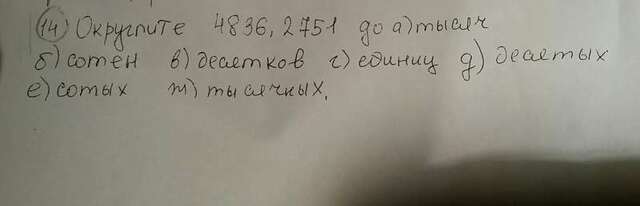 (14) Округлите 4836,2751 до а) тысяч
б) сотен в) десятков г) единиц д) десятых
е) сотых ж) тысячных.